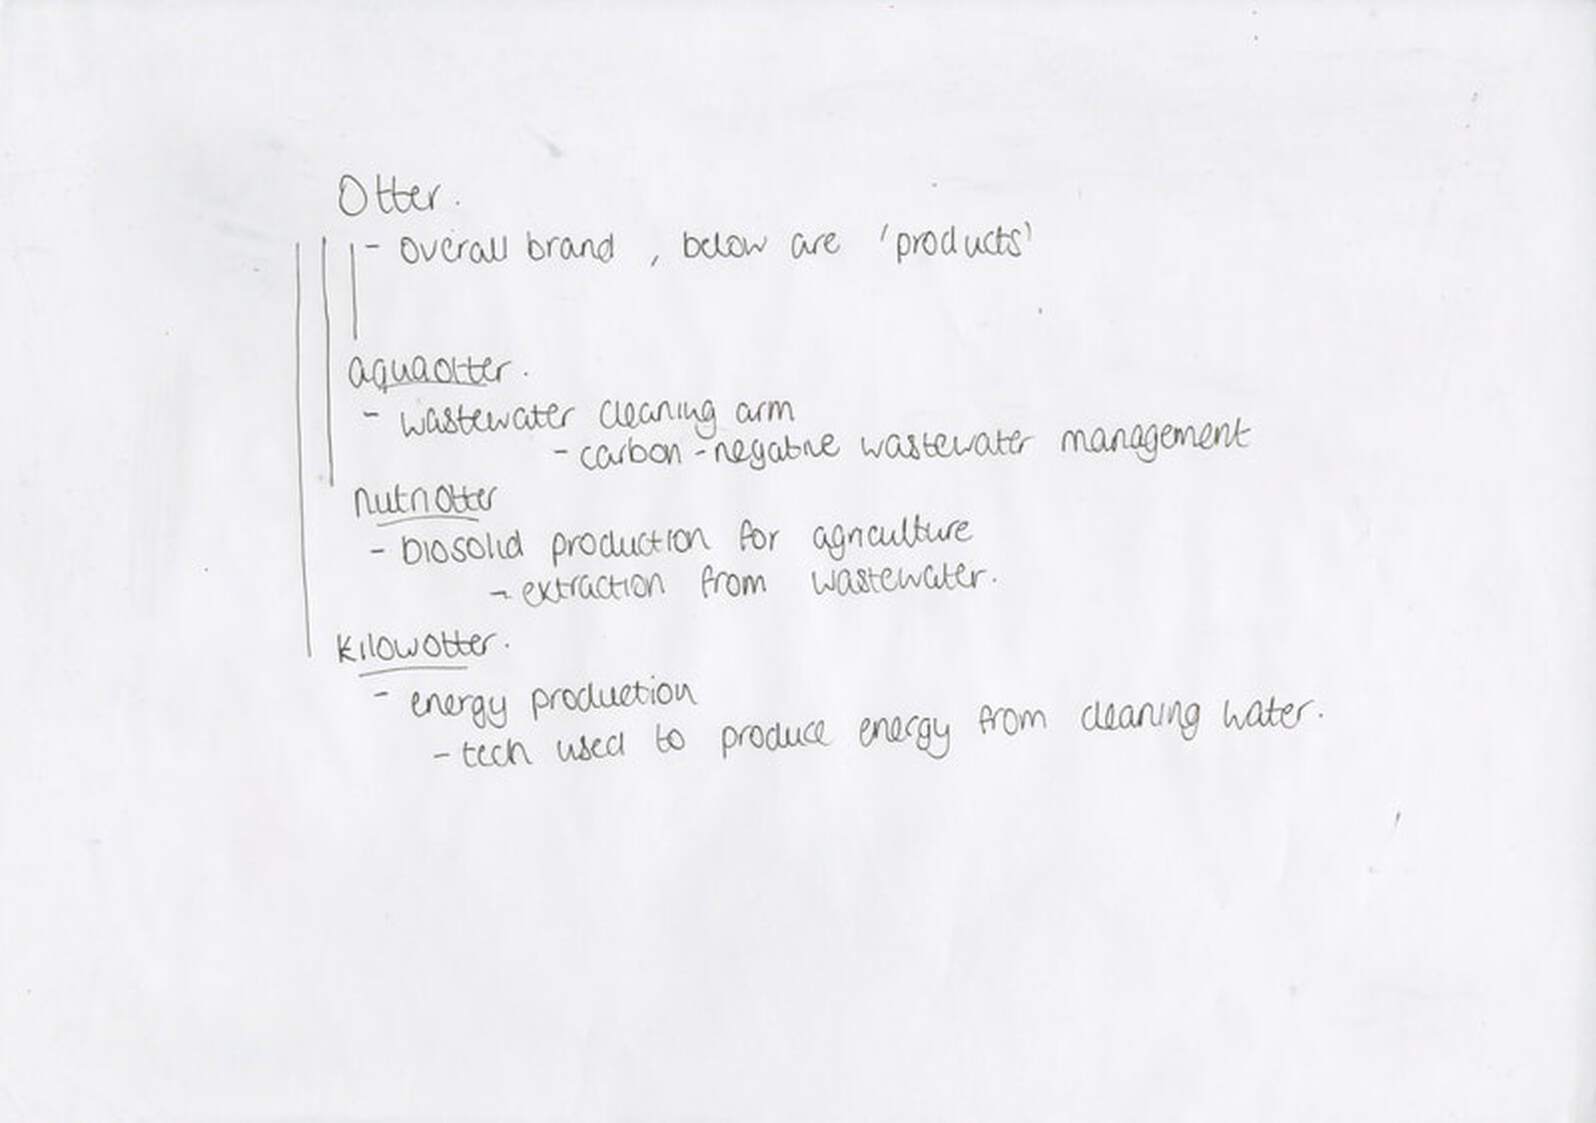 Otter.
- overall brand, below are 'products'
aquaotter.
- wastewater cleaning arm
- carbon-negative wastewater management
nutriotter
- biosolid production for agriculture
- extraction from wastewater.
kilowotter.
- energy production
- tech used to produce energy from cleaning water.